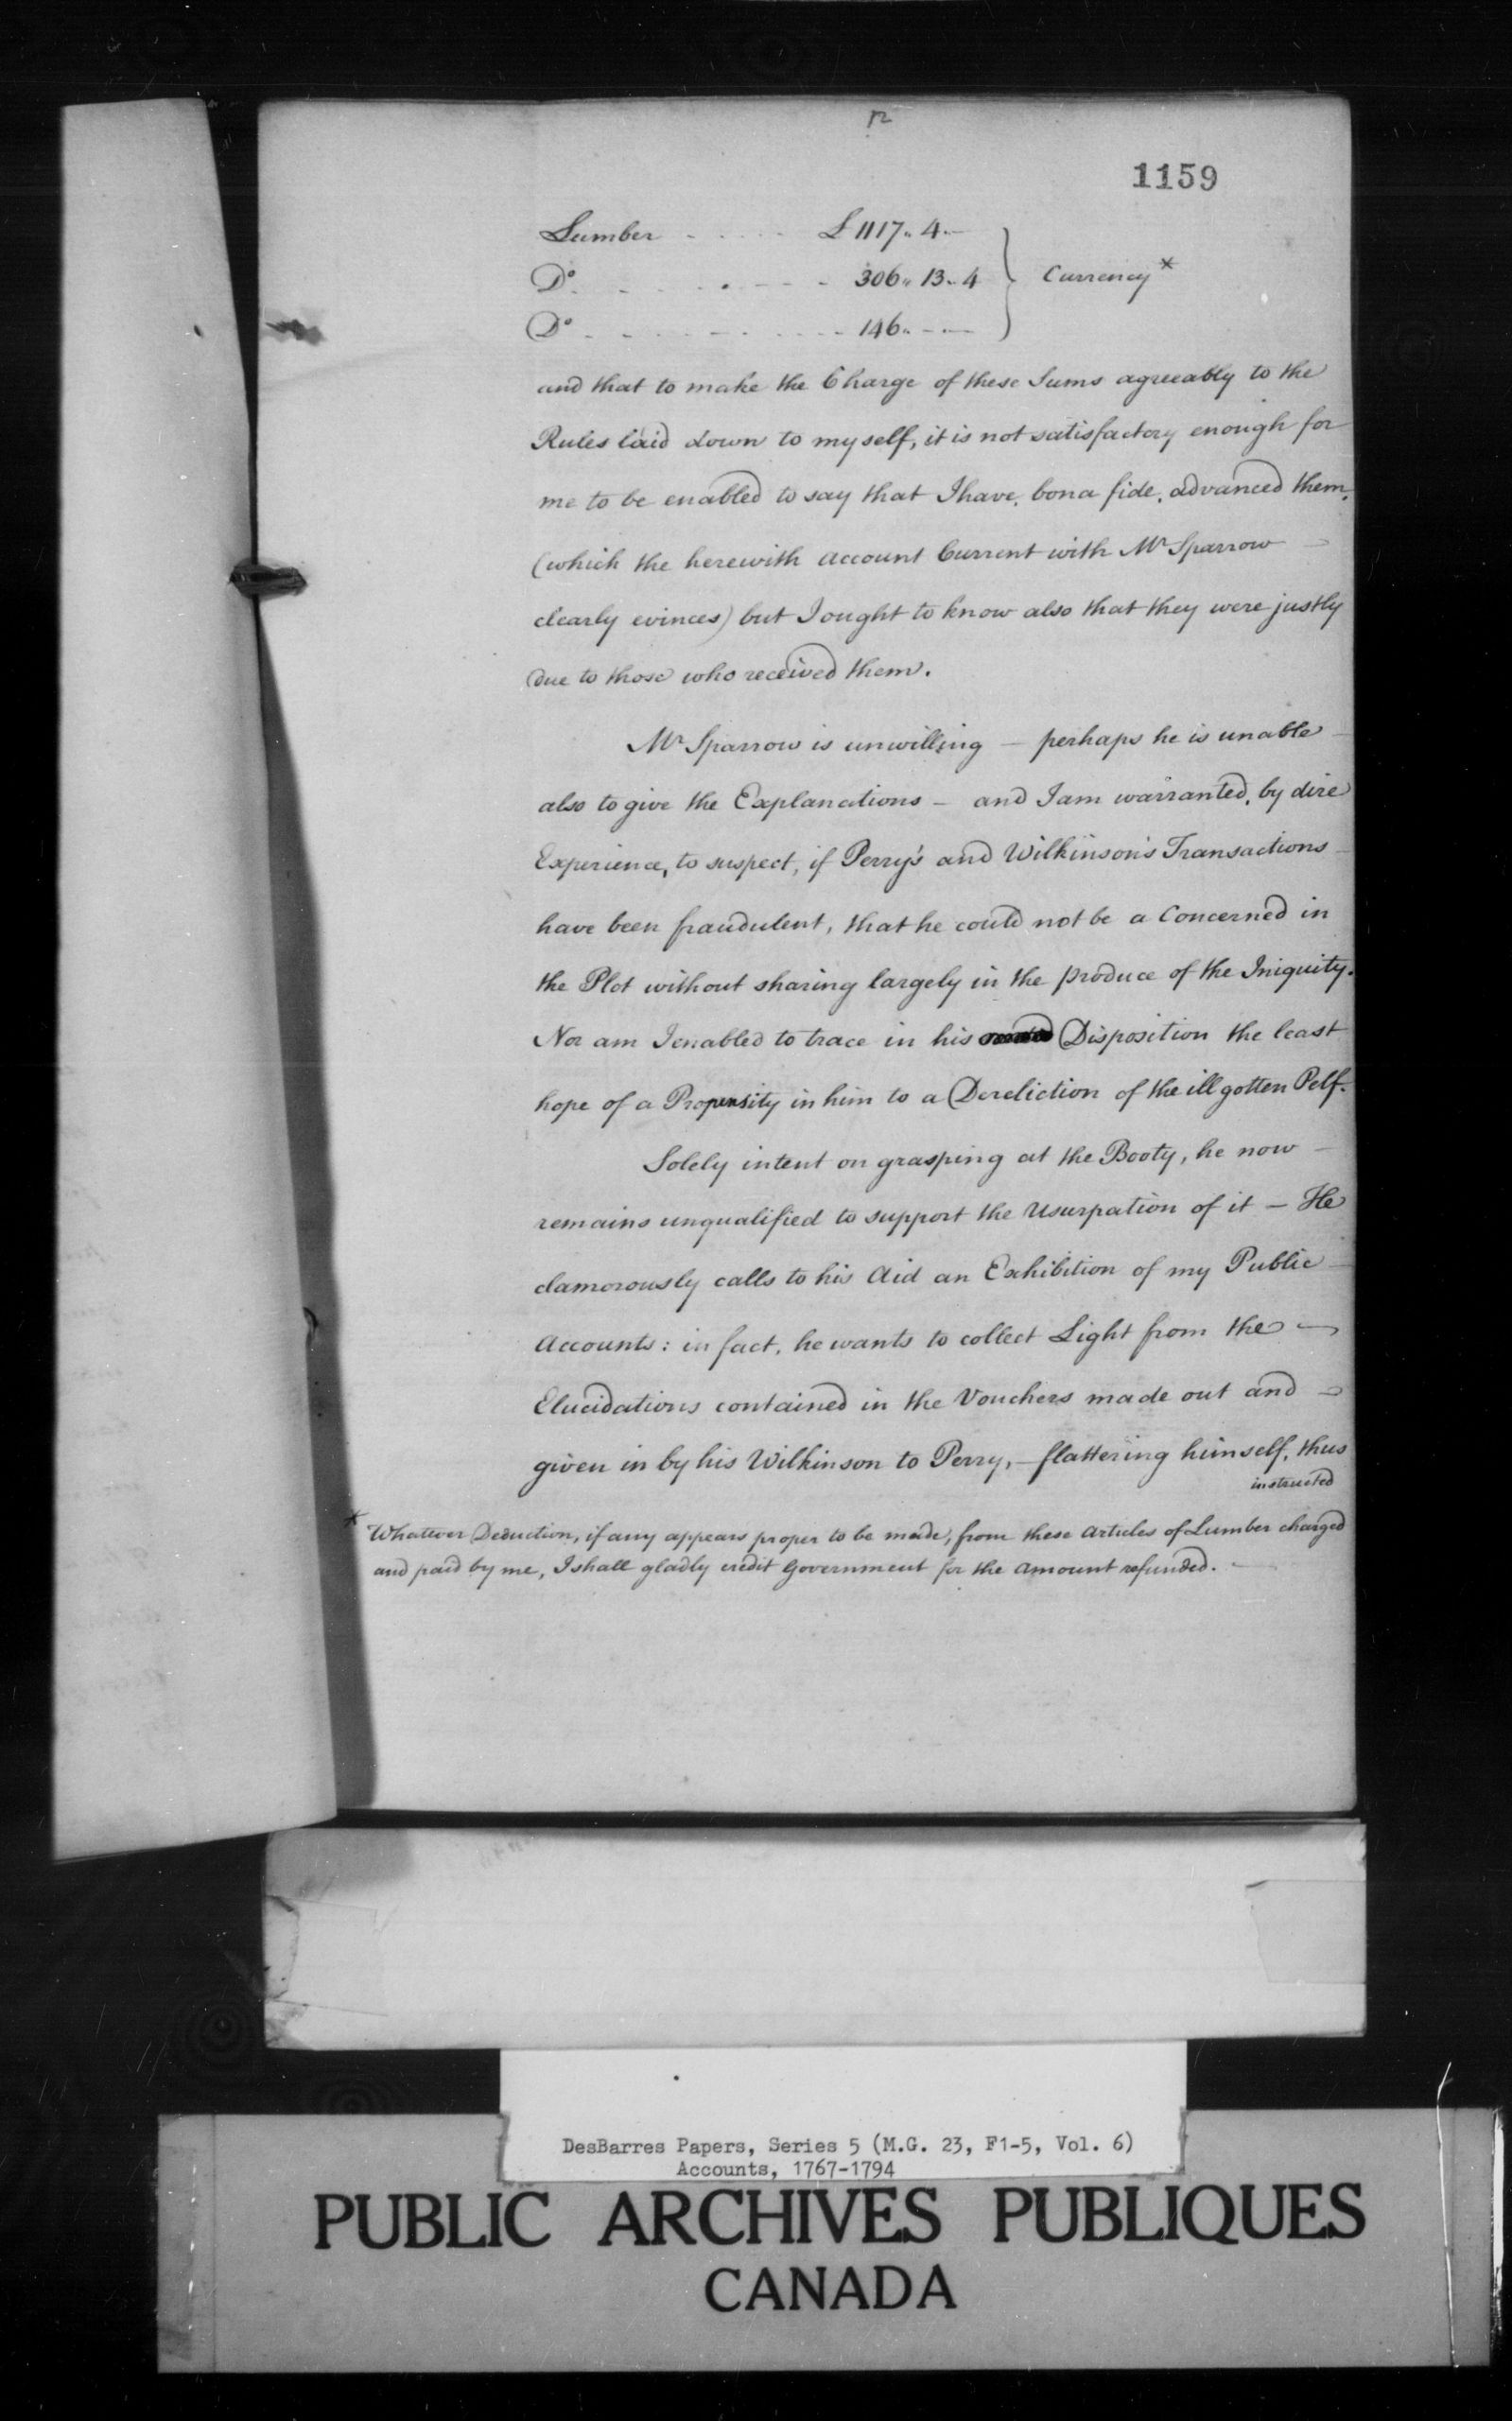 12
1159
Lumber - - - - - £ 1117 " 4 " -
Do. - - - - - - - 306 " 13 " 4 } Currency *
Do - - - - - - - - 146 " - " -
and that to make the Charge of these Sums agreeably to the
Rules laid down to myself, it is not satisfactory enough for
me to be enabled to say that I have, bona fide, advanced them,
(which the herewith account Current with Mr Sparrow
clearly evinces) but I ought to know also that they were justly
due to those who received them.
Mr Sparrow is unwilling - perhaps he is unable
also to give the Explanations - and I am warranted, by dire
Experience, to suspect, if Perry's and Wilkinson's Transactions
have been fraudulent, that he could not be a Concerned in
the Plot without sharing largely in the produce of the Iniquity.
Nor am I enabled to trace in his Disposition the least
hope of a Propensity in him to a Dereliction of the ill gotten Pelf.
Solely intent on grasping at the Booty, he now
remains unqualified to support the Usurpation of it - He
clamorously calls to his Aid an Exhibition of my Public
Accounts: in fact, he wants to collect Light from the
Elucidations contained in the Vouchers made out and
given in by his Wilkinson to Perry, - flattering himself, thus
instructed
* Whatever Deduction, if any appears proper to be made, from these Articles of Lumber charged
and paid by me, I shall gladly credit Government for the Amount refunded.
DesBarres Papers, Series 5 (M.G. 23, F1-5, Vol. 6)
Accounts, 1767-1794
PUBLIC ARCHIVES PUBLIQUES
CANADA